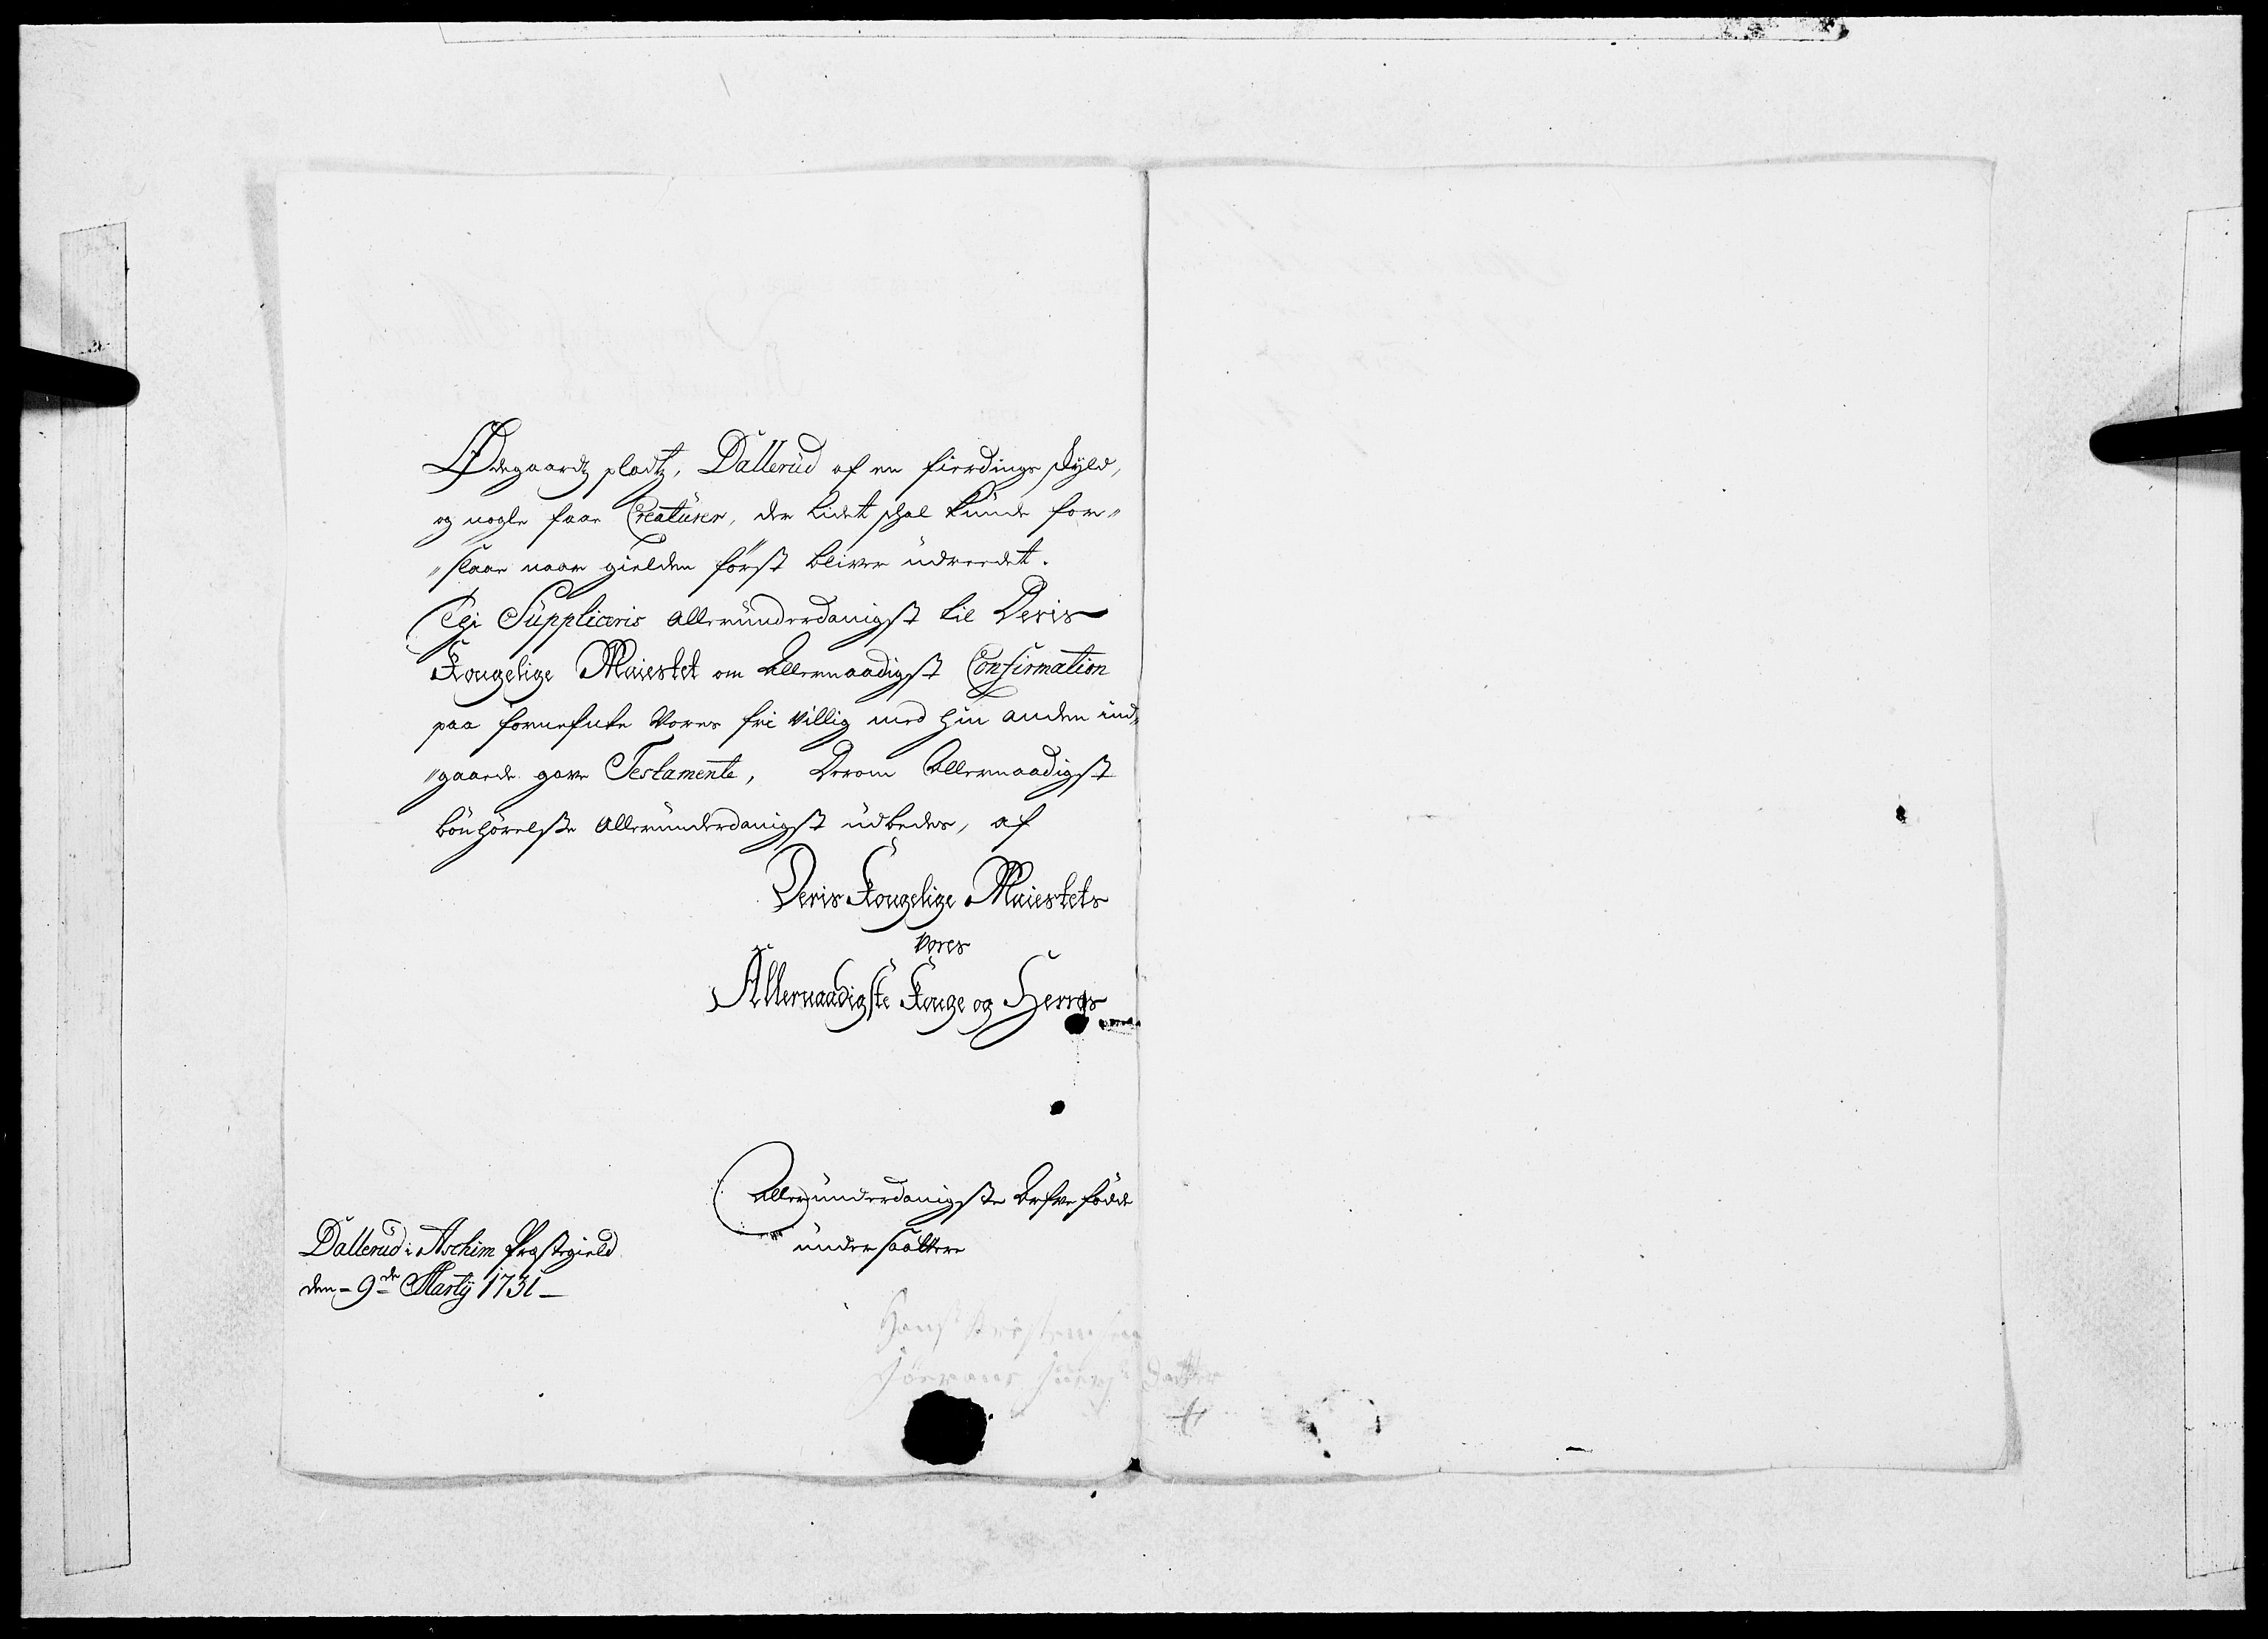 Ødegaardz pladtz, Dallerud af en fierdings skyld,
og nogle faae Creaturer, der lidet skal kunde for„
„slaae naar gielden först bliver udreedet.
Thi Suppliceris allerunderdanigst til Deris
Kongelige Maiestet om allernaadigst Confirmation
paa fornefnte vores fri villig med hin anden ind„
„gaaede gave Testamente, derom allernaadigst
bönhörelsse allerunderdanigst udbedes, af
Deris Kongelige Maiestets
vores
Allernaadigste Konge og Herres
Allerunderdanigste arfve födde
undersaattere
Dallerud i Aschim Præstegield
den 9de Martij 1731
Hans
Jörran datter